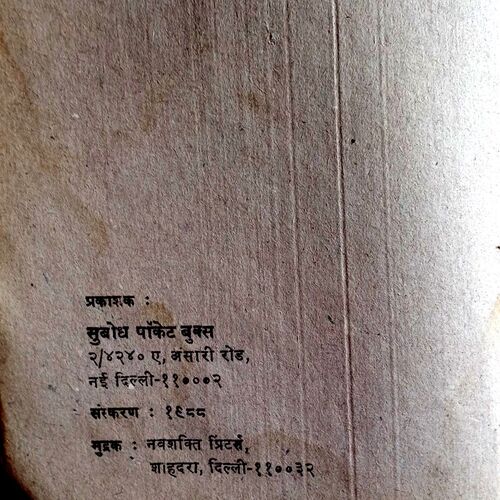 प्रकाशक :
सुबोध पॉकेट बुक्स
२/४२४० ए, अंसारी रोड,
नई दिल्ली-११०००२
संस्करण : १९८८
मुद्रक : नवशक्ति प्रिंटर्स,
शाहदरा, दिल्ली-११००३२